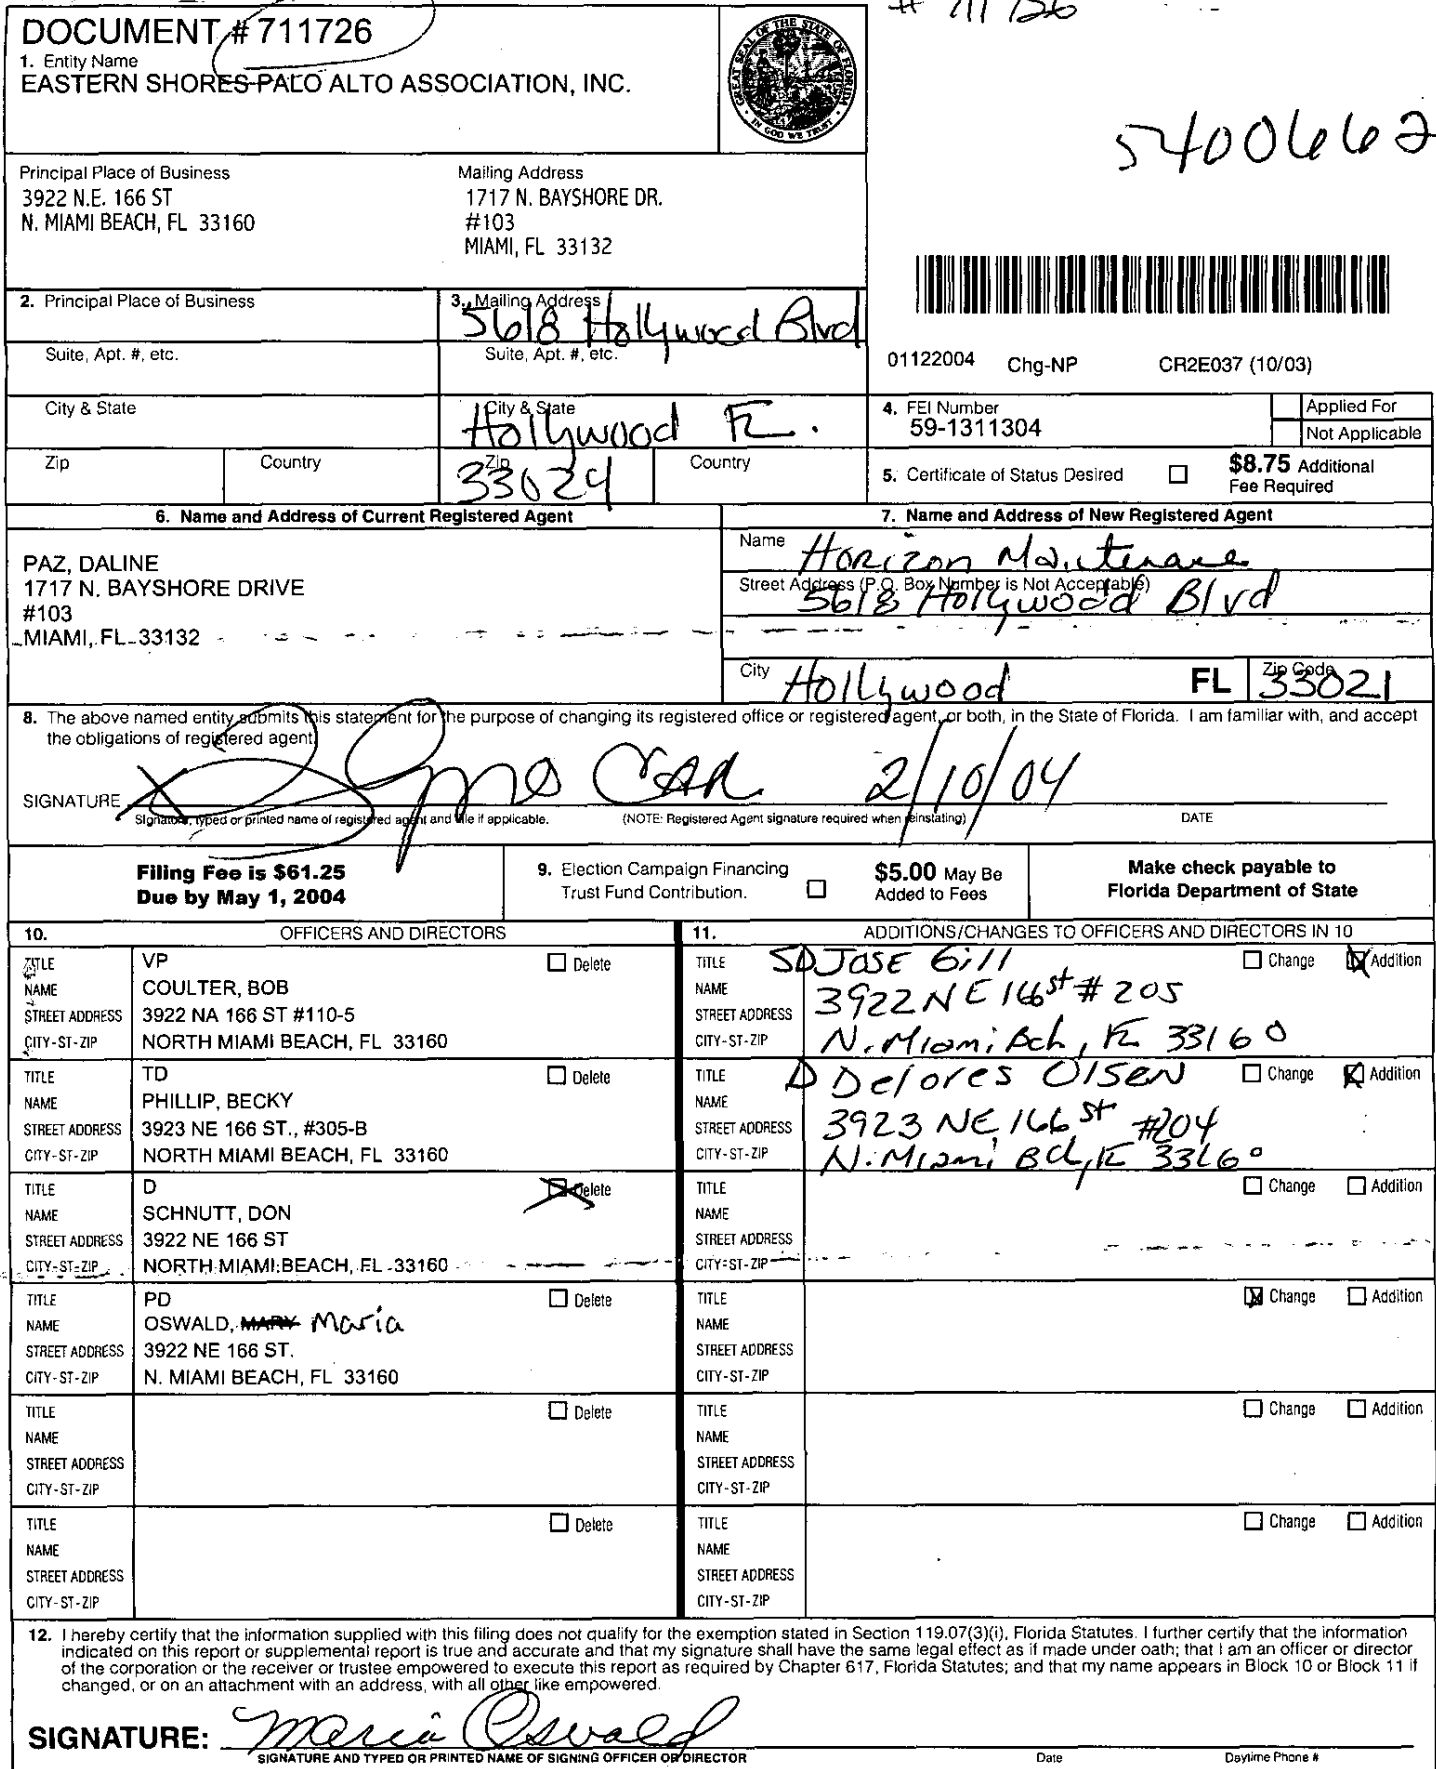 # 711726
DOCUMENT # 711726
1. Entity Name
EASTERN SHORES-PALO ALTO ASSOCIATION, INC.
GREAT SEAL OF THE STATE OF FLORIDA
IN GOD WE TRUST
5400662
Principal Place of Business
3922 N.E. 166 ST
N. MIAMI BEACH, FL 33160
Mailing Address
1717 N. BAYSHORE DR.
#103
MIAMI, FL 33132
2. Principal Place of Business
3. Mailing Address
5618 Hollywood Blvd
Suite, Apt. #, etc.
Suite, Apt. #, etc.
01122004 Chg-NP CR2E037 (10/03)
City & State
City & State
Hollywood FL.
4. FEI Number
59-1311304
Applied For
Not Applicable
Zip
Country
Zip
33024
Country
5. Certificate of Status Desired
$8.75 Additional
Fee Required
6. Name and Address of Current Registered Agent
7. Name and Address of New Registered Agent
PAZ, DALINE
1717 N. BAYSHORE DRIVE
#103
MIAMI, FL 33132
Name
Horizon
Street Address (P.O. Box Number is Not Acceptable)
5618 Hollywood Blvd
City
Hollywood
FL
Zip Code
33021
8. The above named entity submits this statement for the purpose of changing its registered office or registered agent, or both, in the State of Florida. I am familiar with, and accept
the obligations of registered agent.
SIGNATURE
2/10/04
Signature, typed or printed name of registered agent and title if applicable.
(NOTE: Registered Agent signature required when reinstating)
DATE
Filing Fee is $61.25
Due by May 1, 2004
9. Election Campaign Financing
Trust Fund Contribution.
$5.00 May Be
Added to Fees
Make check payable to
Florida Department of State
10. OFFICERS AND DIRECTORS
11. ADDITIONS/CHANGES TO OFFICERS AND DIRECTORS IN 10
TITLE VP Delete
NAME COULTER, BOB
STREET ADDRESS 3922 NA 166 ST #110-5
CITY-ST-ZIP NORTH MIAMI BEACH, FL 33160
TITLE SD Jose Gill Change Addition
NAME
STREET ADDRESS 3922 NE 166 st # 205
CITY-ST-ZIP N. Miami Bch, FL 33160
TITLE TD Delete
NAME PHILLIP, BECKY
STREET ADDRESS 3923 NE 166 ST., #305-B
CITY-ST-ZIP NORTH MIAMI BEACH, FL 33160
TITLE D Delores Olsen Change Addition
NAME
STREET ADDRESS 3923 NE 166 st #204
CITY-ST-ZIP N. Miami Bch, FL 33160
TITLE D Delete
NAME SCHNUTT, DON
STREET ADDRESS 3922 NE 166 ST
CITY-ST-ZIP NORTH MIAMI BEACH, FL 33160
TITLE Change Addition
NAME
STREET ADDRESS
CITY-ST-ZIP
TITLE PD Delete
NAME OSWALD, MARY Maria
STREET ADDRESS 3922 NE 166 ST.
CITY-ST-ZIP N. MIAMI BEACH, FL 33160
TITLE Change Addition
NAME
STREET ADDRESS
CITY-ST-ZIP
TITLE Delete
NAME
STREET ADDRESS
CITY-ST-ZIP
TITLE Change Addition
NAME
STREET ADDRESS
CITY-ST-ZIP
TITLE Delete
NAME
STREET ADDRESS
CITY-ST-ZIP
TITLE Change Addition
NAME
STREET ADDRESS
CITY-ST-ZIP
12. I hereby certify that the information supplied with this filing does not qualify for the exemption stated in Section 119.07(3)(i), Florida Statutes. I further certify that the information
indicated on this report or supplemental report is true and accurate and that my signature shall have the same legal effect as if made under oath; that I am an officer or director
of the corporation or the receiver or trustee empowered to execute this report as required by Chapter 617, Florida Statutes; and that my name appears in Block 10 or Block 11 if
changed, or on an attachment with an address, with all other like empowered.
SIGNATURE: Maria Oswald
SIGNATURE AND TYPED OR PRINTED NAME OF SIGNING OFFICER OR DIRECTOR
Date
Daytime Phone #